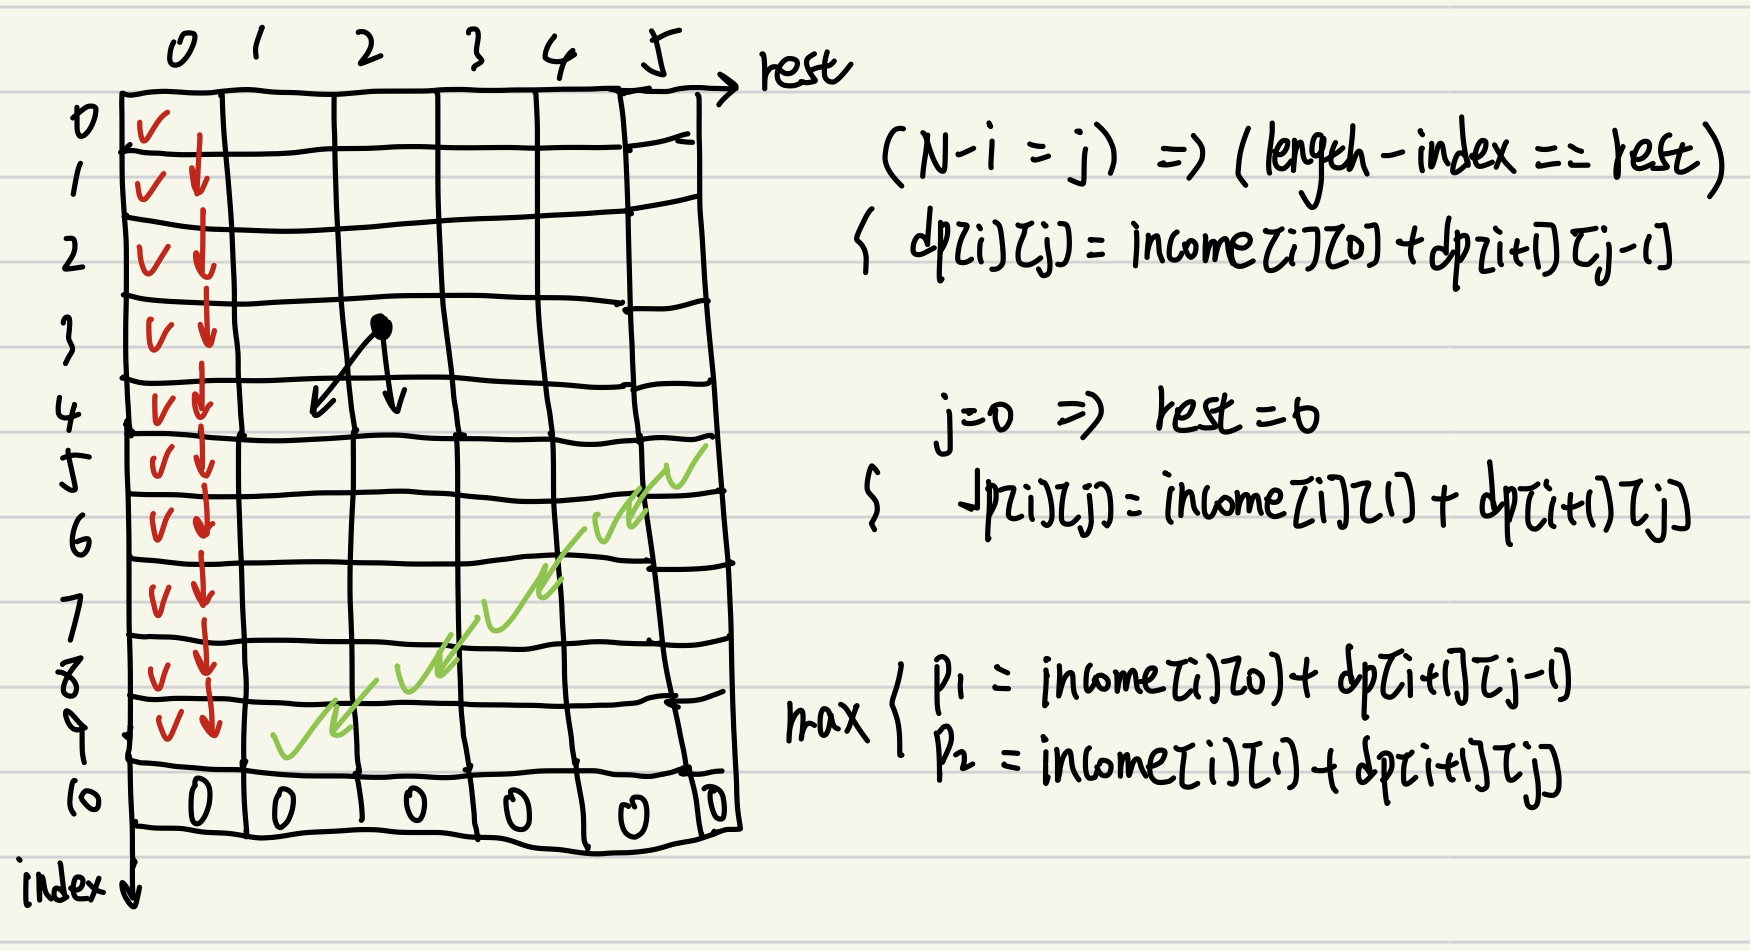 0 1 2 3 4 5 rest
0
1
2
3
4
5
6
7
8
9
10 0 0 0 0 0 0
index
(N-i = j) => (length-index == rest)
{ dp[i][j] = income[i][0] + dp[i+1][j-1]
j=0 => rest=0
{ dp[i][j] = income[i][1] + dp[i+1][j]
max { p1 = income[i][0] + dp[i+1][j-1]
p2 = income[i][1] + dp[i+1][j]